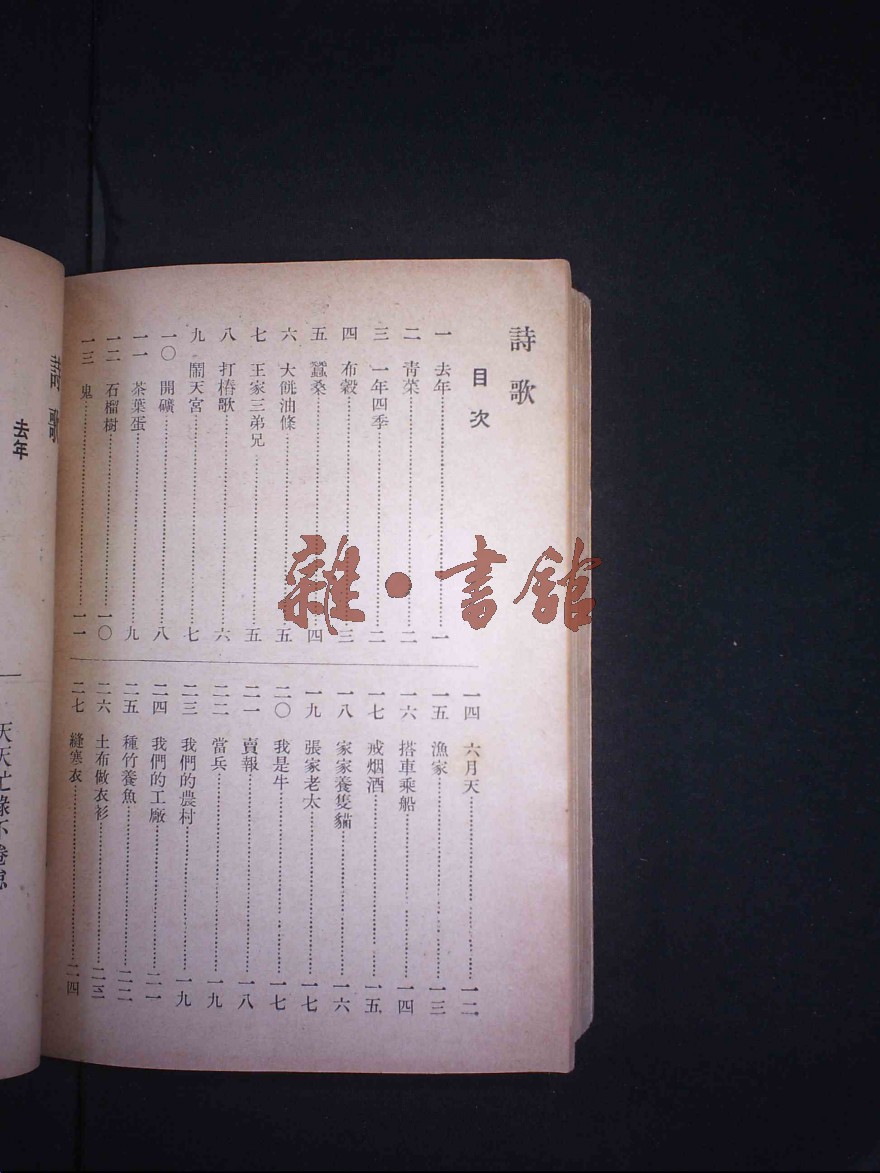 詩歌
目次
一 去年 一
二 靑菜 二
三 一年四季 二
四 布穀 三
五 蠶桑 四
六 大餅油條 五
七 王家三弟兄 五
八 打樁歌 六
九 鬧天宮 七
一〇 開礦 八
一一 茶葉蛋 九
一二 石榴樹 一〇
一三 鬼 一一
一四 六月天 一二
一五 漁家 一三
一六 搭車乘船 一四
一七 戒烟酒 一五
一八 家家養隻貓 一六
一九 張家老太 一七
二〇 我是牛 一七
二一 賣報 一八
二二 當兵 一九
二三 我們的農村 一九
二四 我們的工廠 二一
二五 種竹養魚 二二
二六 土布做衣衫 二三
二七 縫寒衣 二四
詩歌
去年
雜•書館